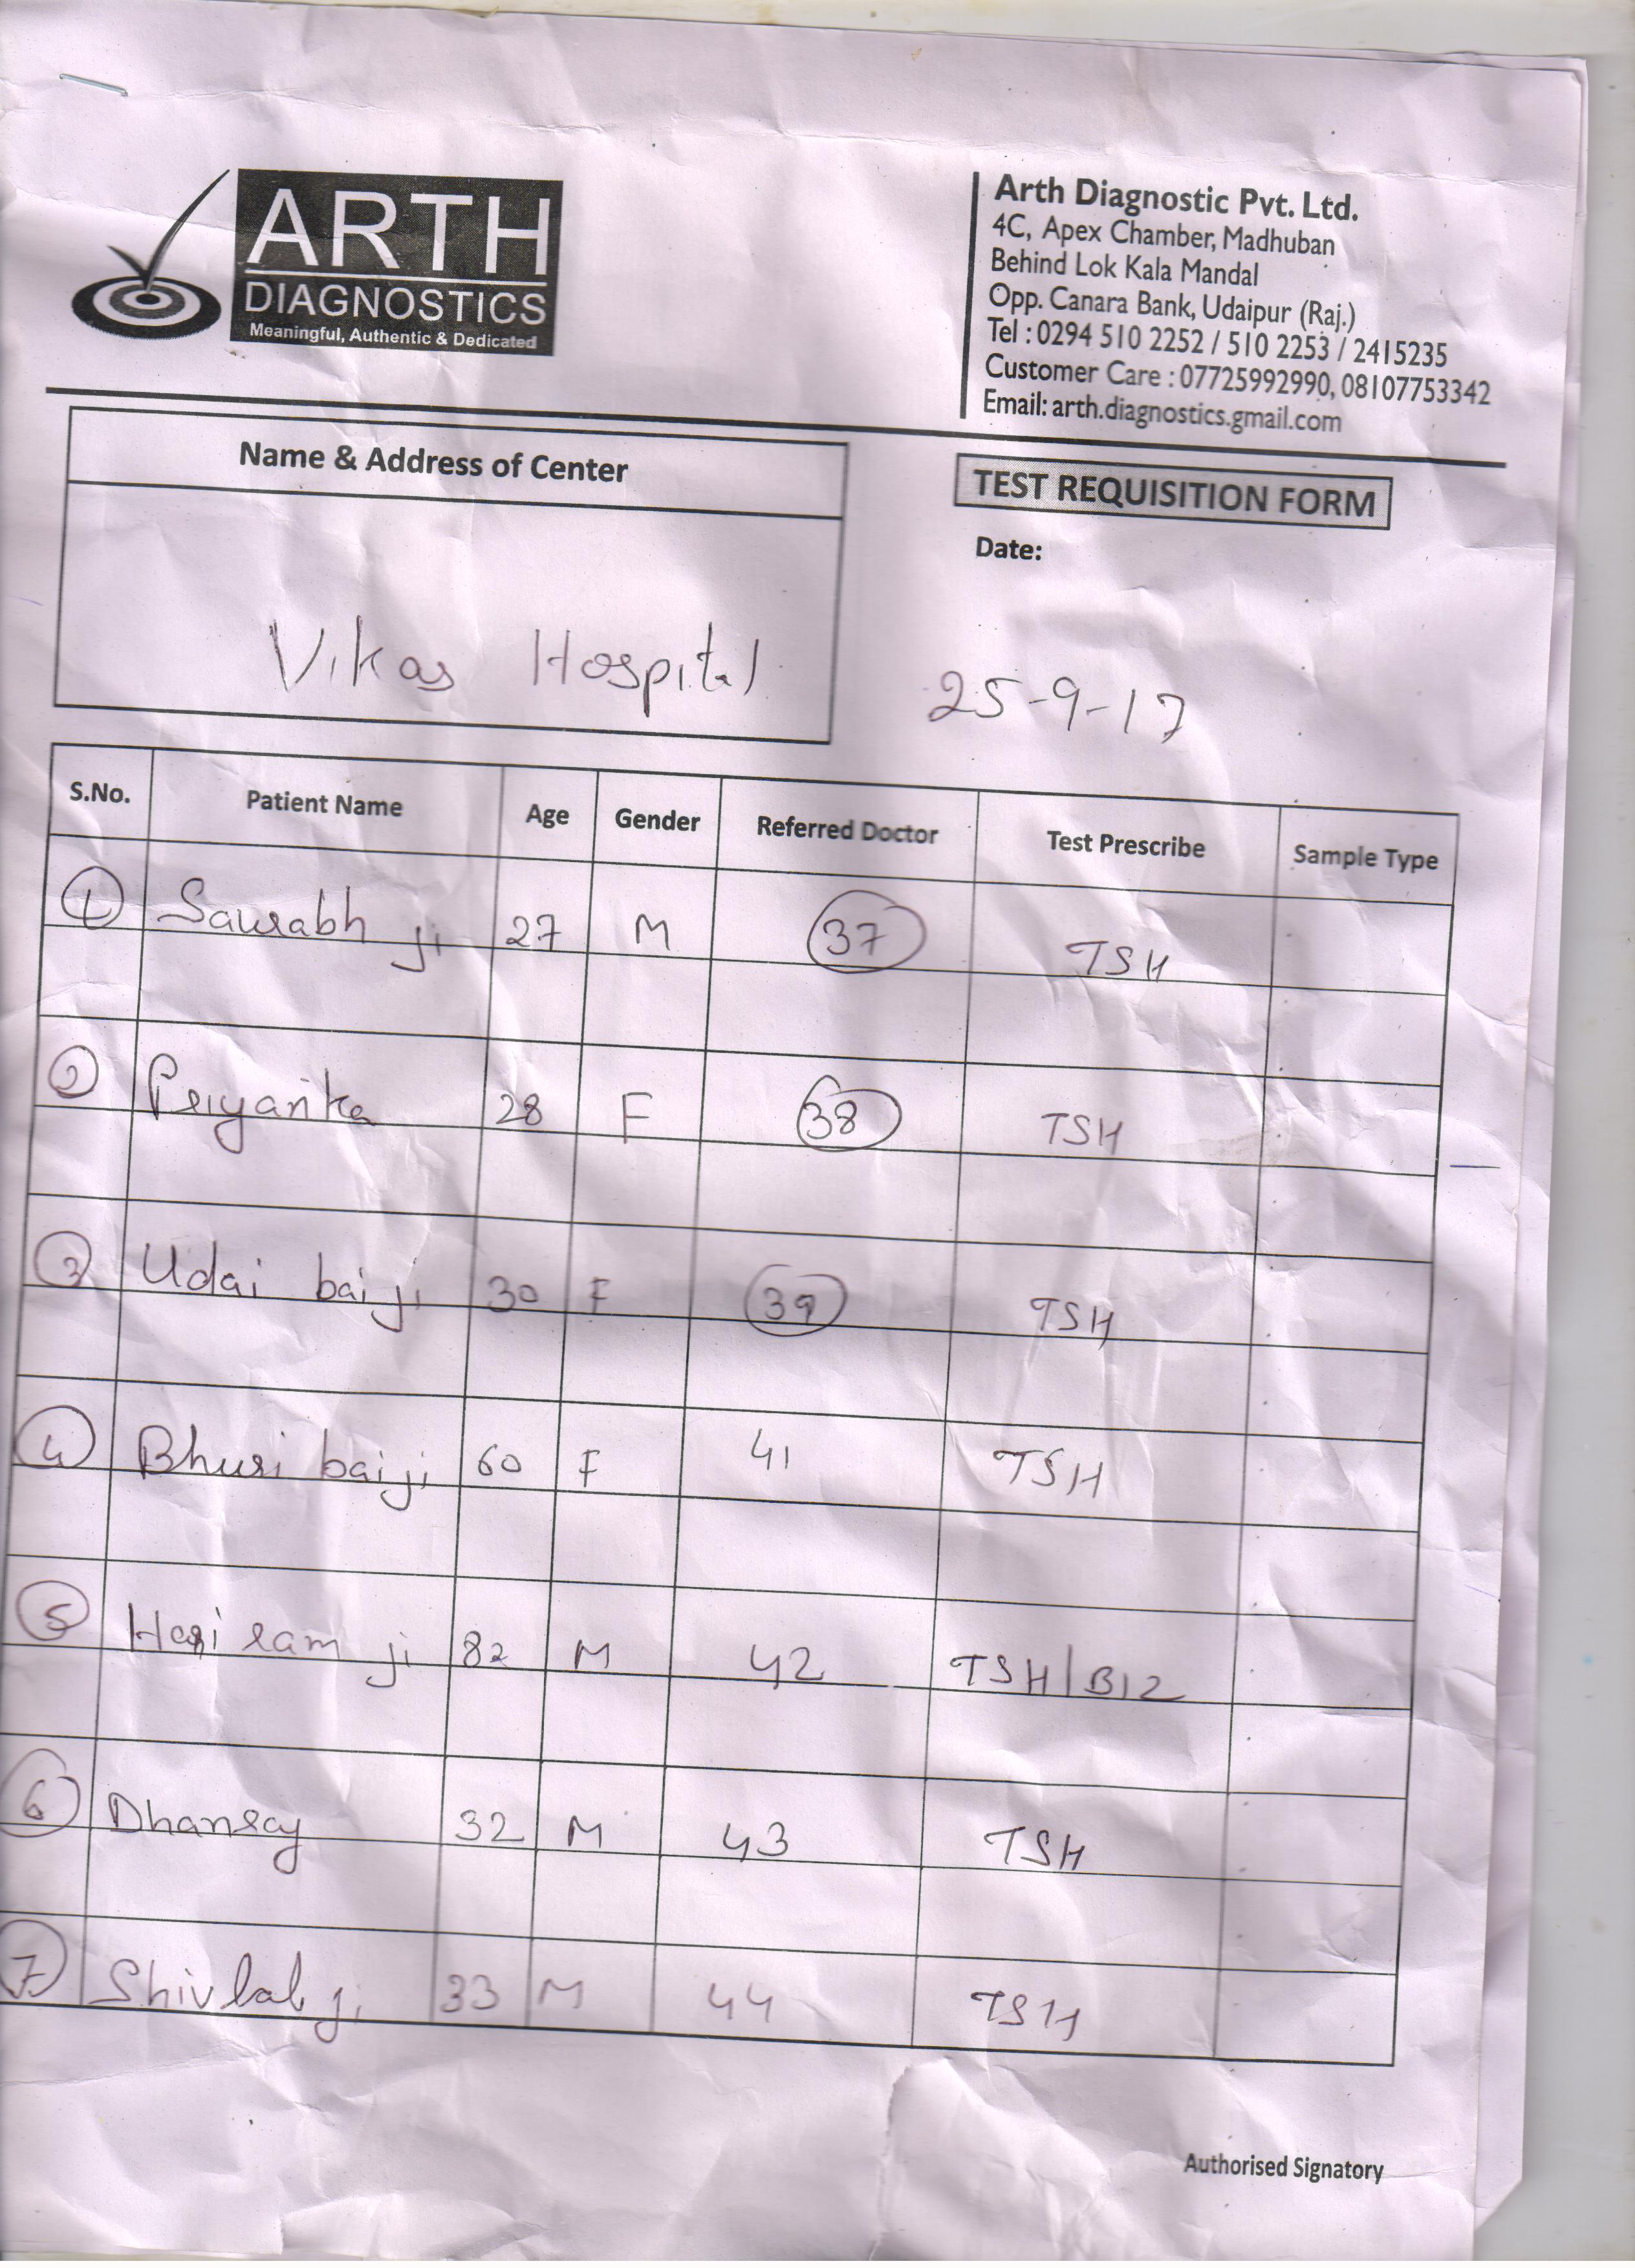 ARTH
DIAGNOSTICS
Meaningful, Authentic & Dedicated
Arth Diagnostic Pvt. Ltd.
4C, Apex Chamber, Madhuban
Behind Lok Kala Mandal
Opp. Canara Bank, Udaipur (Raj.)
Tel : 0294 510 2252 / 510 2253 / 2415235
Customer Care : 07725992990, 08107753342
Email: arth.diagnostics.gmail.com
Name & Address of Center
Vikas Hospital
TEST REQUISITION FORM
Date:
25-9-17
S.No. Patient Name Age Gender Referred Doctor Test Prescribe Sample Type
1 Saurabh ji 27 M 37 TSH
2 Priyanka 28 F 38 TSH
3 Udai bai ji 30 F 39 TSH
4 Bhuri bai ji 60 F 41 TSH
5 Hari ram ji 82 M 42 TSH/B12
6 Dhanraj 32 M 43 TSH
7 Shivlal ji 33 M 44 TSH
Authorised Signatory